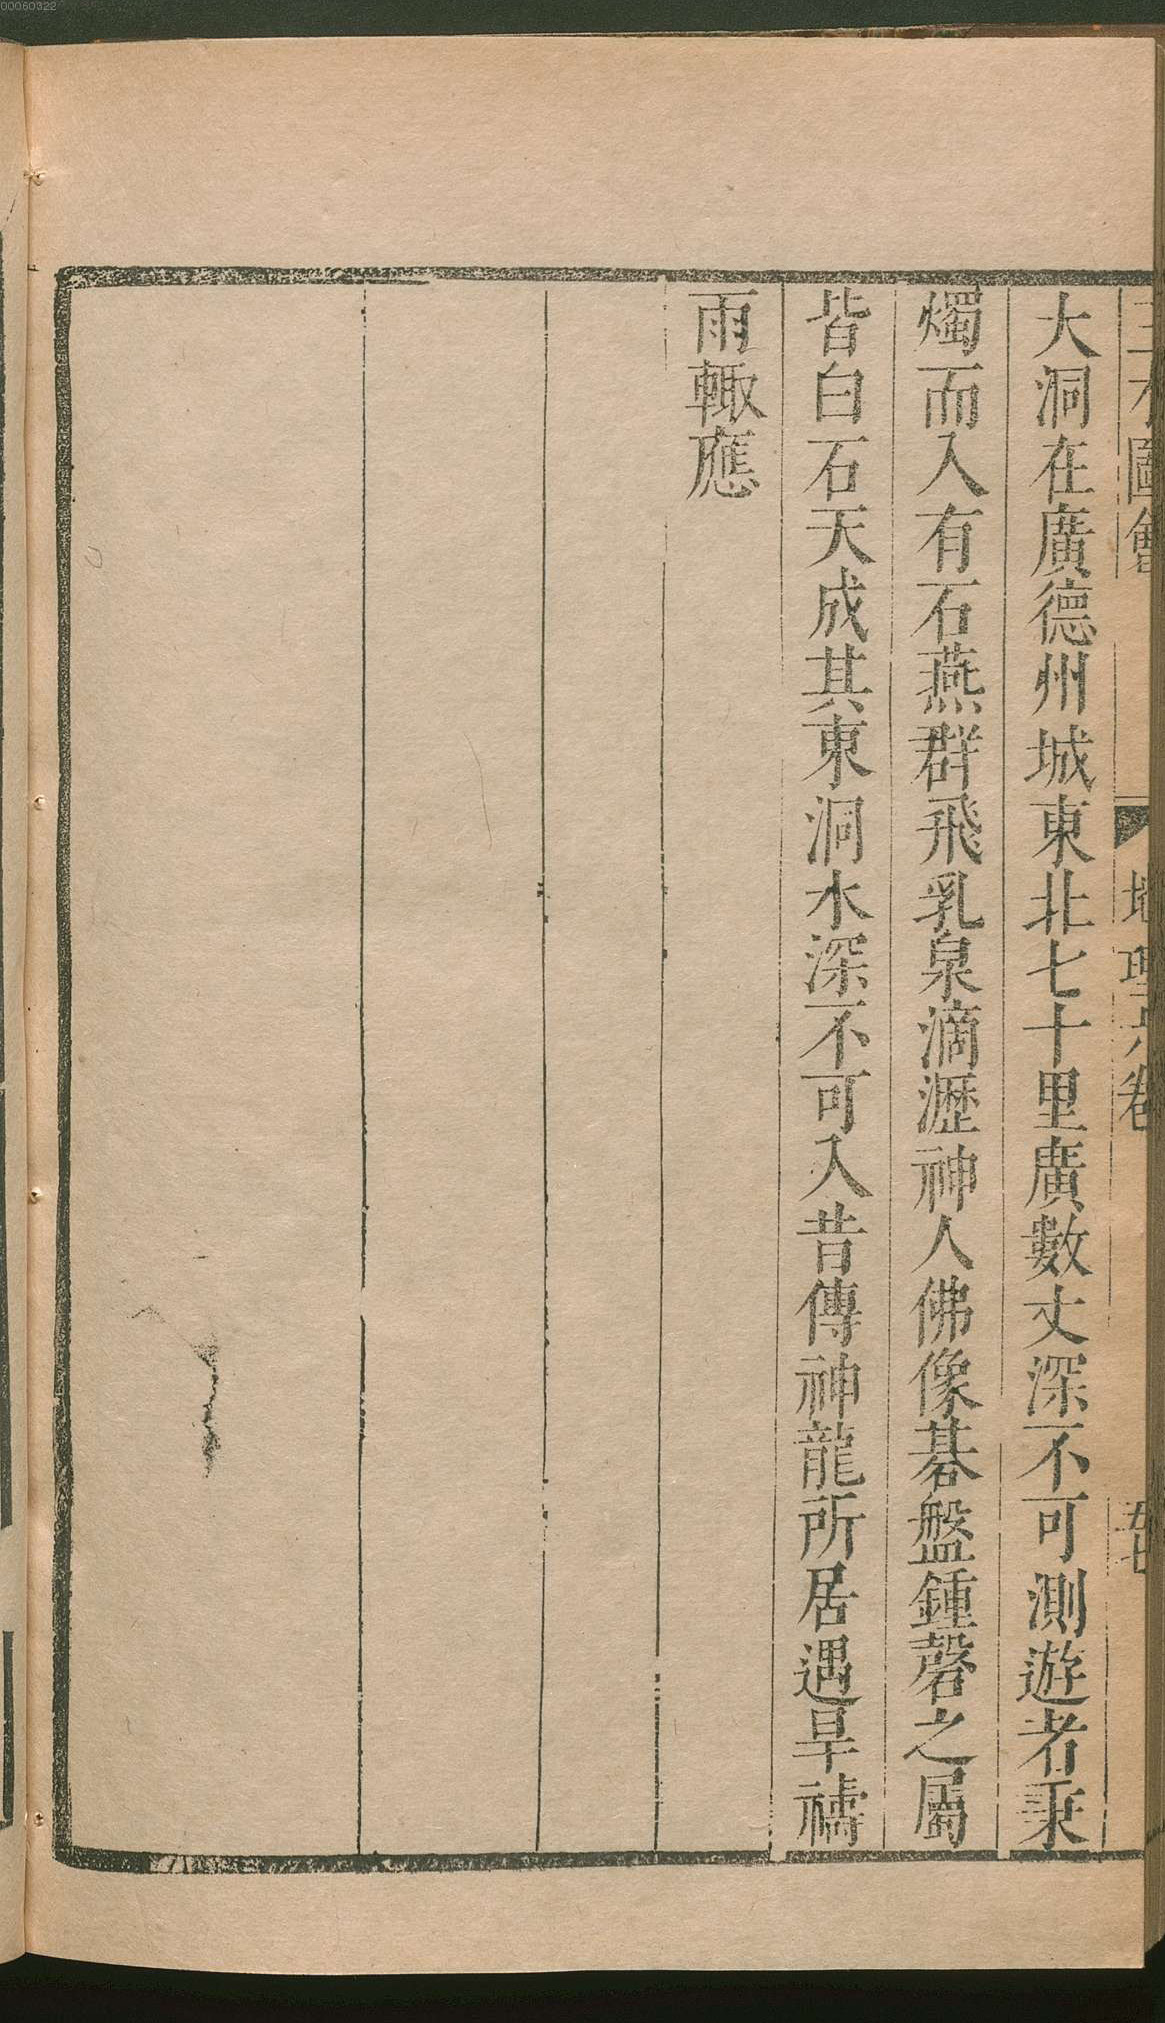 大洞在廣德州城東北七十里廣數丈深不可測遊者秉
燭而入有石燕群飛乳泉滴瀝神人佛像碁盤鍾磬之屬
皆白石天成其東洞水深不可入昔傳神龍所居遇旱禱
雨輙應
圖會
00060322